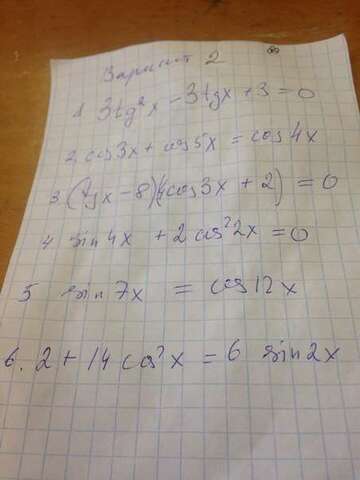 Вариант 2
1 3tg²x - 3tgx + 3 = 0
2 cos3x + cos5x = cos4x
3 (tgx - 8)(4cos3x + 2) = 0
4 sin4x + 2cos²2x = 0
5 sin7x = cos12x
6. 2 + 14cos²x = 6 sin2x